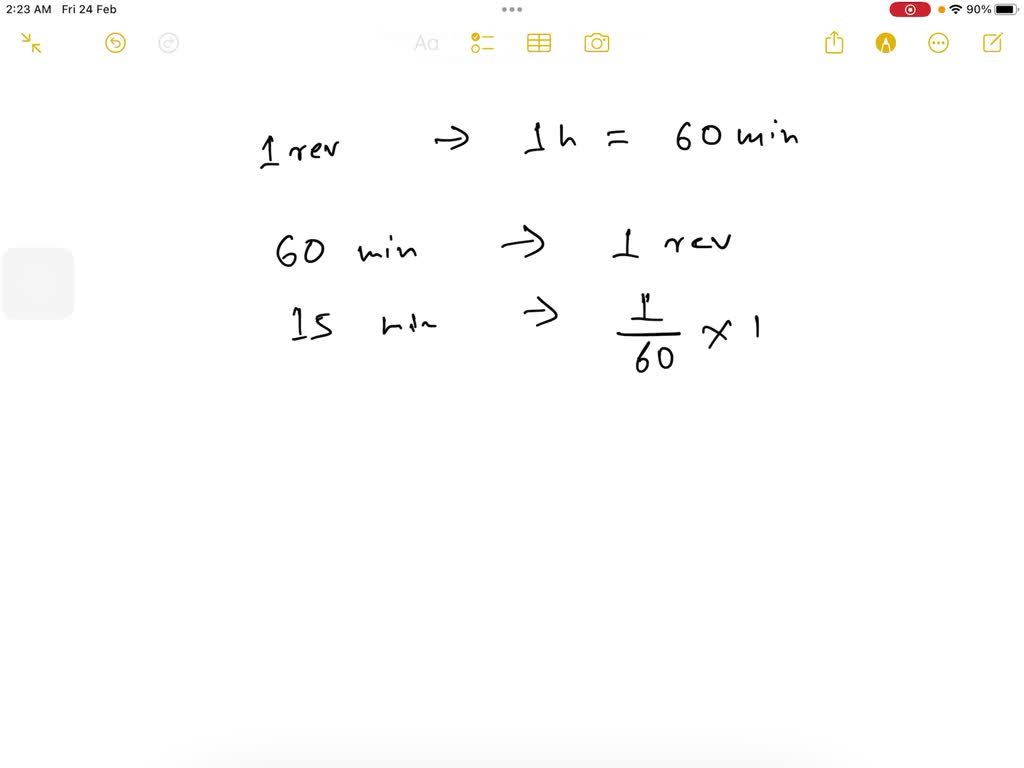 2:23 AM Fri 24 Feb
90%
Aa
1 rev → 1h = 60 min
60 min → 1 rev
15 min → 1/60 × 1